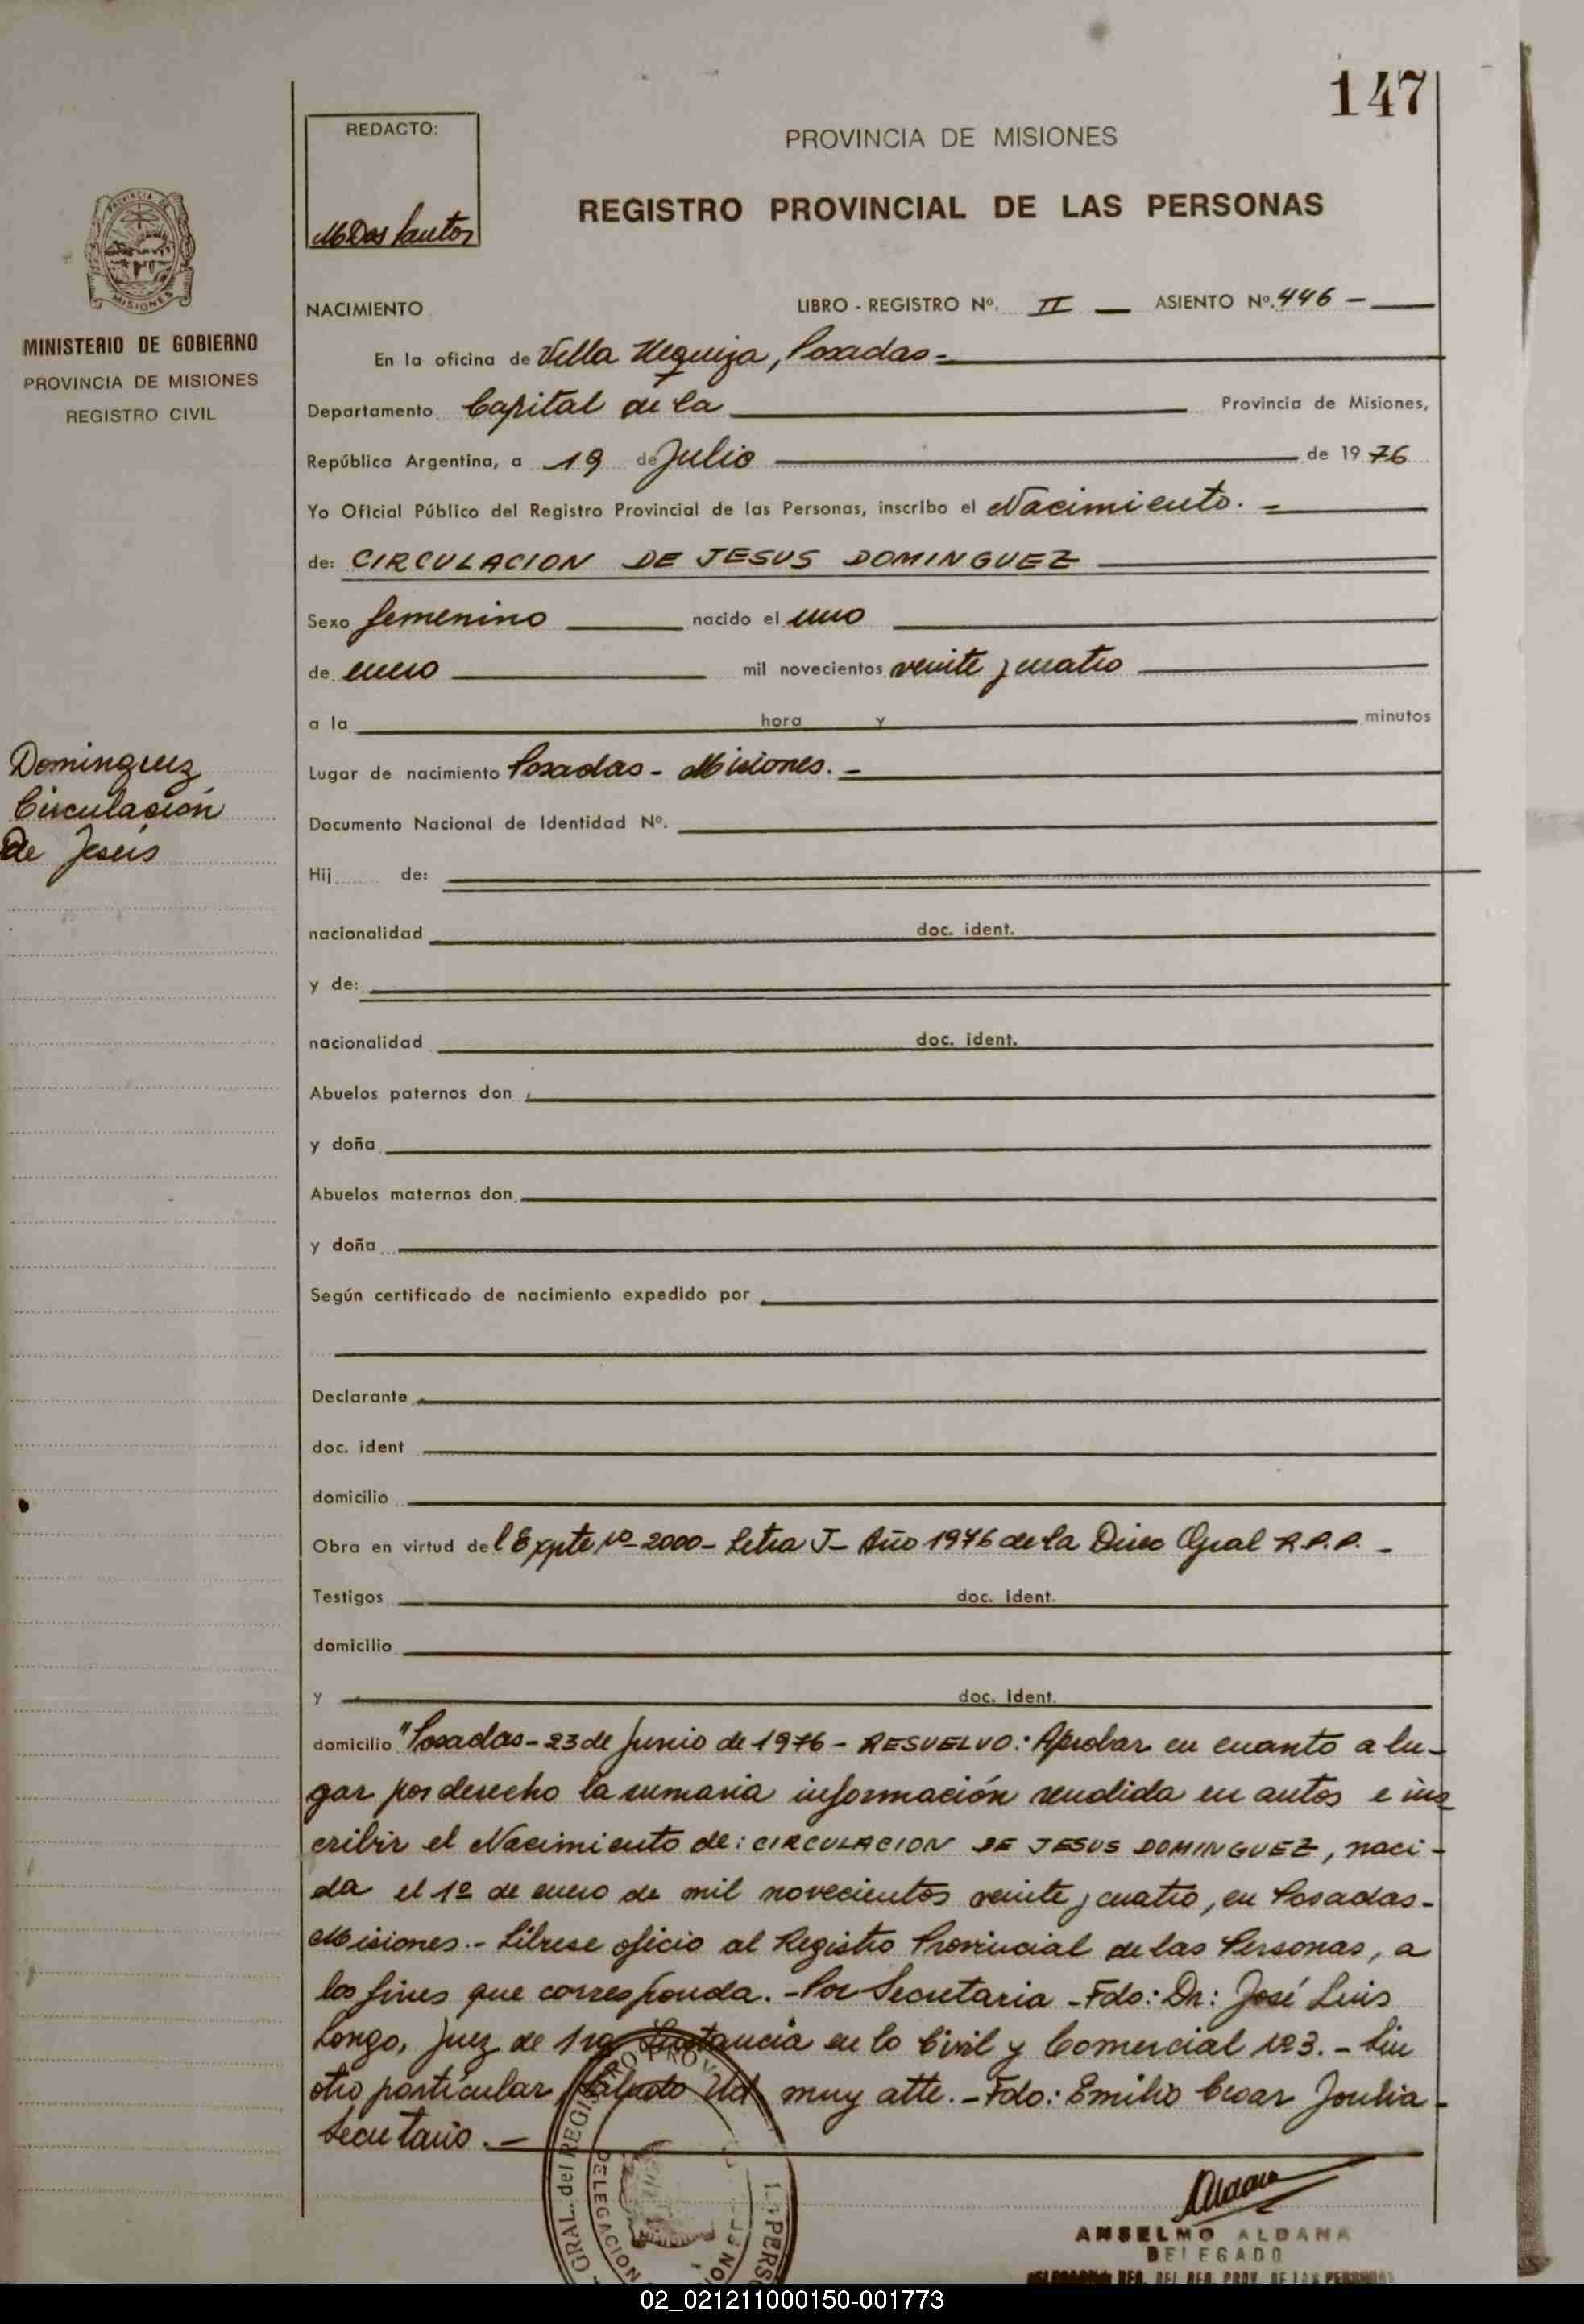 147
REDACTO:
M Dos Santos
PROVINCIA DE MISIONES
REGISTRO PROVINCIAL DE LAS PERSONAS
PROVINCIA DE
MISIONES
MINISTERIO DE GOBIERNO
PROVINCIA DE MISIONES
REGISTRO CIVIL
NACIMIENTO LIBRO - REGISTRO Nº. II — ASIENTO Nº. 446 —
En la oficina de Villa Urquiza, Posadas =
Departamento Capital de la Provincia de Misiones,
República Argentina, a 19 de Julio de 19 76
Yo Oficial Público del Registro Provincial de las Personas, inscribo el Nacimiento. =
de: CIRCULACION DE JESUS DOMINGUEZ
Sexo femenino nacido el uno
de enero mil novecientos veinte y cuatro
a la hora y minutos
Dominguez
Circulación
De Jesús
Lugar de nacimiento Posadas - Misiones. -
Documento Nacional de Identidad Nº.
Hij de:
nacionalidad doc. ident.
y de:
nacionalidad doc. ident.
Abuelos paternos don
y doña
Abuelos maternos don
y doña
Según certificado de nacimiento expedido por
Declarante
doc. ident
domicilio
Obra en virtud del Expte Nº 2000 - Letra J - Año 1976 de la Direc Gral R.P.P. -
Testigos doc. ident.
domicilio
y doc. ident.
domicilio "Posadas - 23 de Junio de 1976 - RESUELVO: Aprobar en cuanto a lu-
gar por derecho la sumaria información rendida en autos e ins
cribir el Nacimiento de: CIRCULACION DE JESUS DOMINGUEZ, naci-
da el 1º de enero de mil novecientos veinte y cuatro, en Posadas-
Misiones. - Líbrese oficio al Registro Provincial de las Personas, a
los fines que corresponda. - Por Secretaria - Fdo: Dr: José Luis
Longo, Juez de 1ra Instancia en lo Civil y Comercial Nº 3. - Sin
otro particular Saludo Ud. muy atte. - Fdo: Emilio Cesar Joulia -
Secretario. -
GRAL. del REGISTRO PROV
DELEGACION
ANSELMO ALDANA
DELEGADO
REG. DEL REG. PROV. DE LAS PERSONAS
02_021211000150-001773